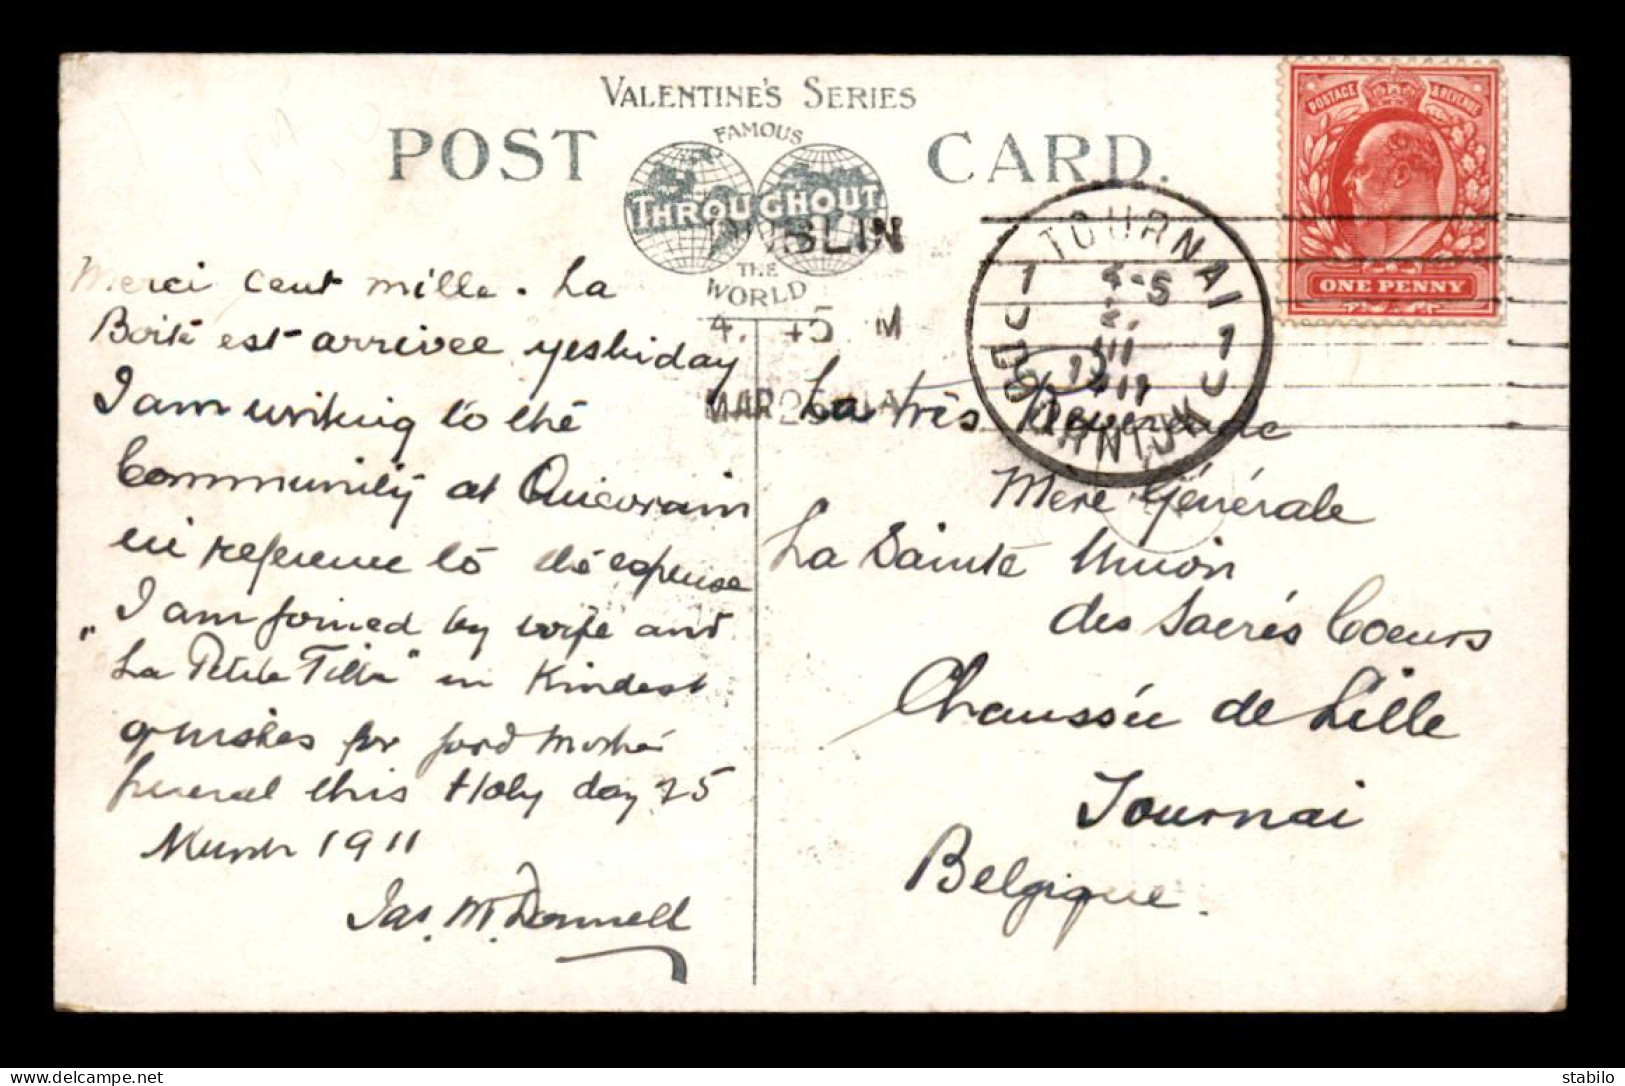 VALENTINE'S SERIES
POST CARD.
FAMOUS
THROUGHOUT
THE
WORLD
DUBLIN
4. 45 M
MAR 25
TOURNAI
1 4-5 1
1911
DOORNIJK
POSTAGE & REVENUE
ONE PENNY
Merci cent mille. La
Boite est arrivee yesterday
I am writing to the
Community at Quievrain
in reference to the expense
I am joined by wife and
"La Petite Fille" in Kindest
wishes for good Mother
General this Holy day 25
March 1911
Jas. McDonnell
La très Reverende
Mère Générale
La Sainte Union
des Sacrés Coeurs
Chaussée de Lille
Tournai
Belgique.
delcampe.net
stabilo